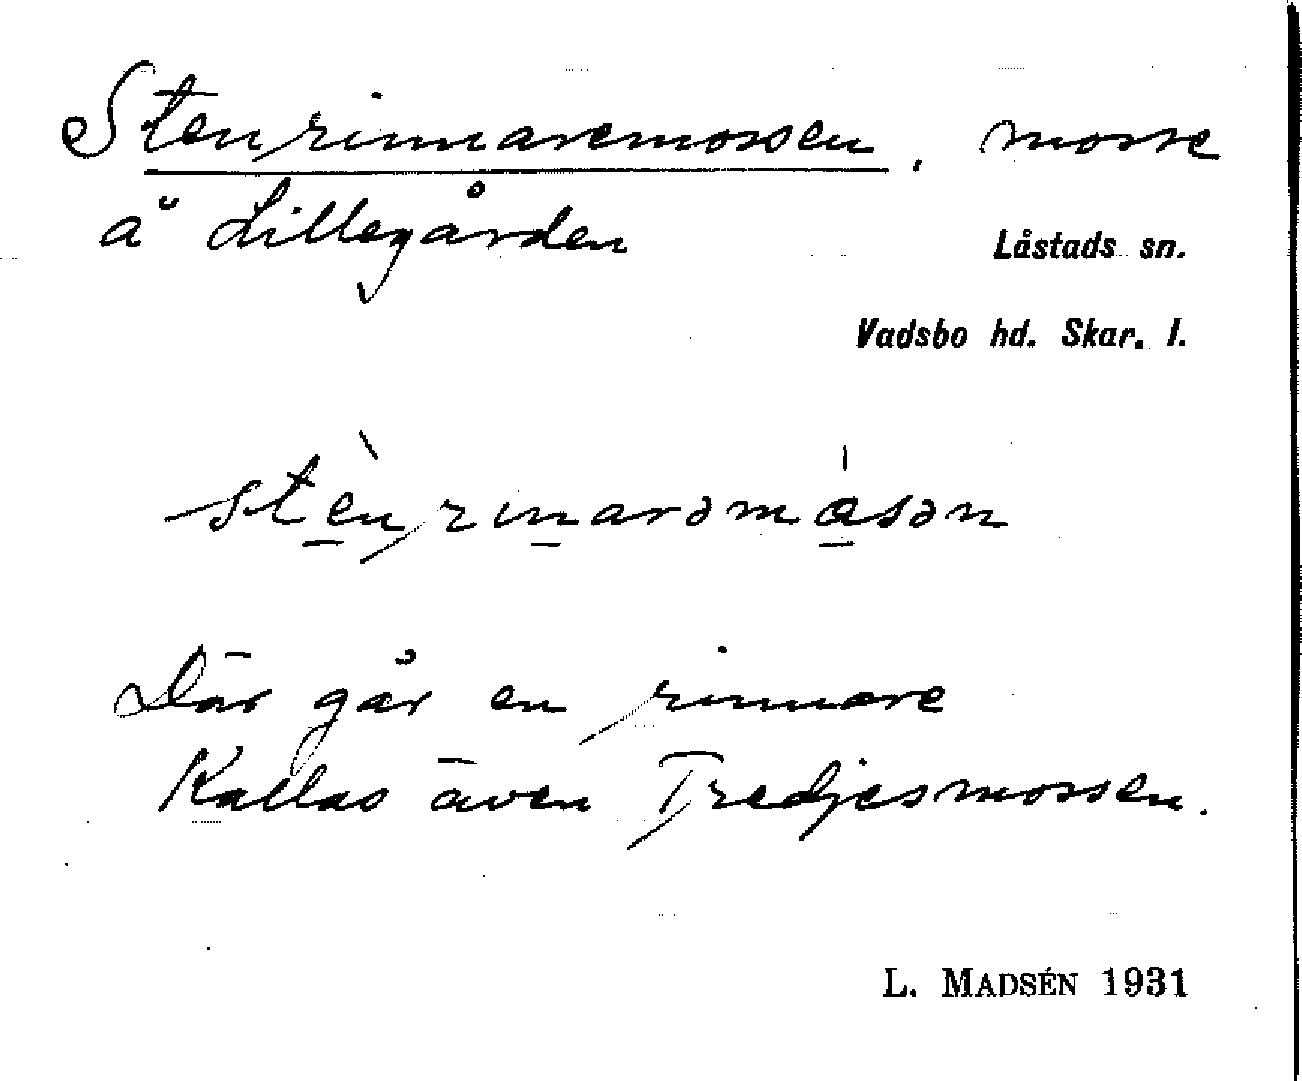 Stenrinnaremossen, mosse
å Lillegården
Låstads sn.
Vadsbo hd. Skar. l.
stènrinarəmåsən
Där går en rinnare
Kallas även Tredjesmossen.
L. MADSÉN 1931